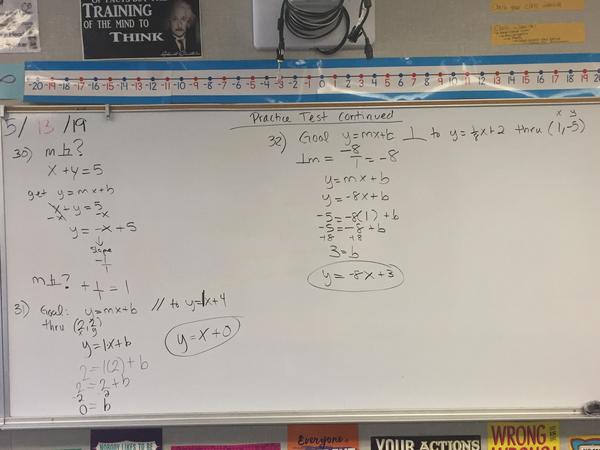 TRAINING
OF THE MIND TO
THINK
-20 -19 -18 -17 -16 -15 -14 -13 -12 -11 -10 -9 -8 -7 -6 -5 -4 -3 -2 -1 0 1 2 3 4 5 6 7 8 9 10 11 12 13 14 15 16 17 18 19
5/13/19
Practice Test Continued
30) m⊥?
x + y = 5
get y = mx + b
x + y = 5
-x -x
y = -x + 5
slope
-1/1
m⊥? + 1/1 = 1
31) Goal: y = mx + b // to y = 1x + 4
thru (2, 2)
x, y
y = 1x + b
y = x + 0
2 = 1(2) + b
2 = 2 + b
-2 -2
0 = b
32) Goal y = mx + b ⊥ to y = 1/8x + 2 thru (1, -5)
x y
⊥m = -8/1 = -8
y = mx + b
y = -8x + b
-5 = -8(1) + b
-5 = -8 + b
+8 +8
3 = b
y = -8x + 3
NOBODY LIKES TO BE
Everyone
YOUR ACTIONS
WRONG
WRONG